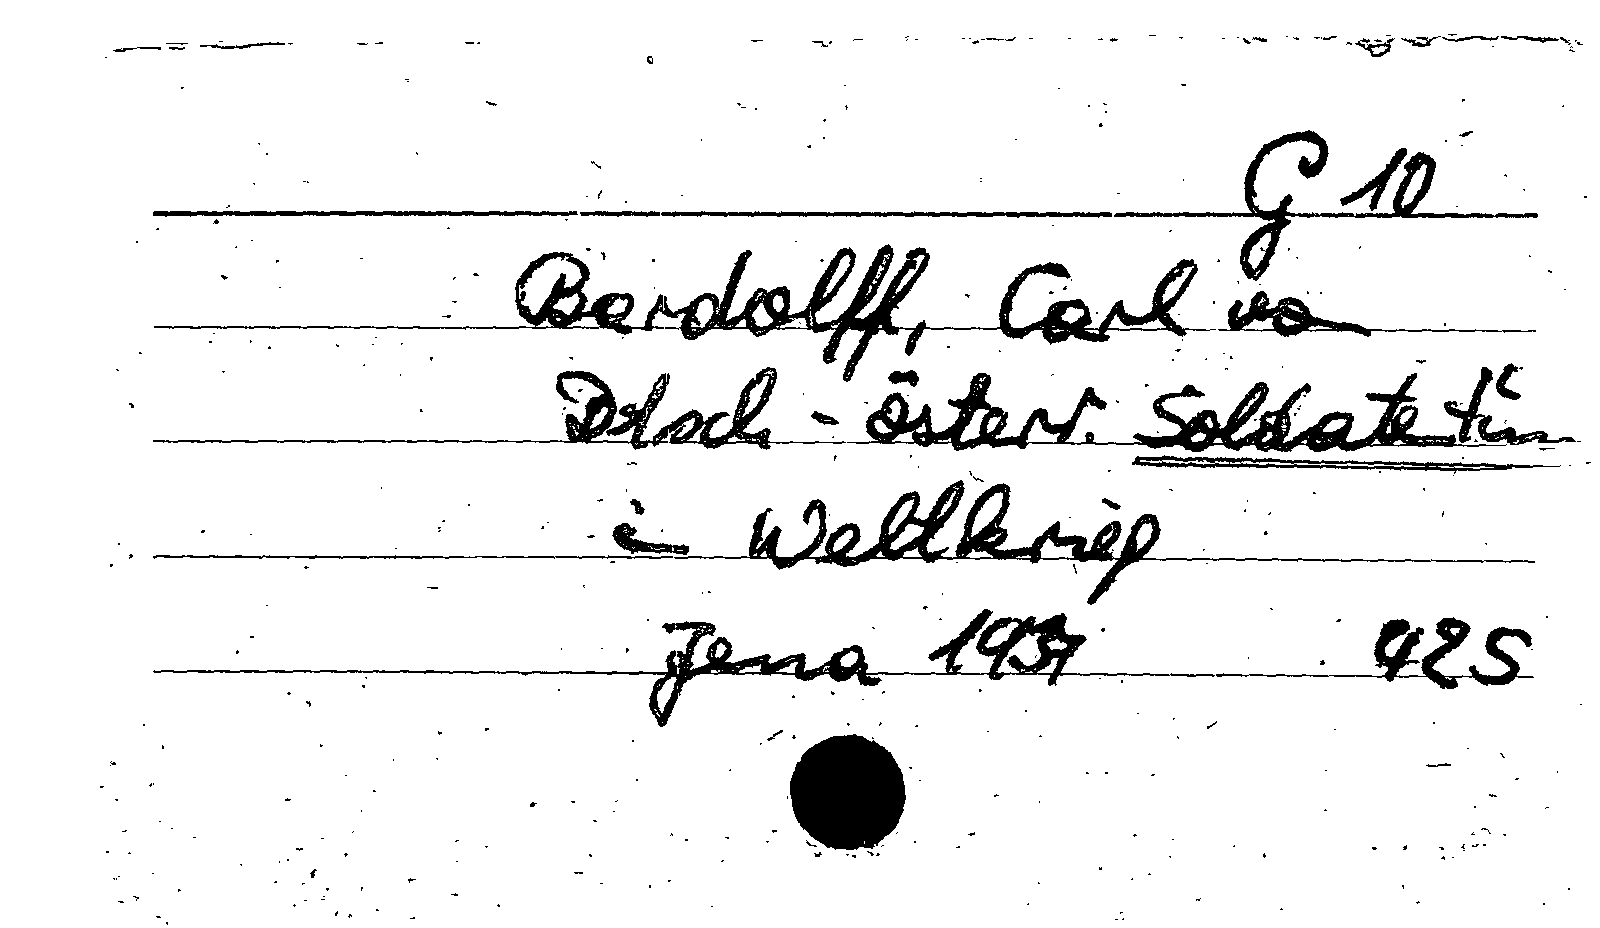 G 10
Bardolff, Carl von
Dtsch-österr. Soldatentum
im Weltkrieg
Jena 1937 425